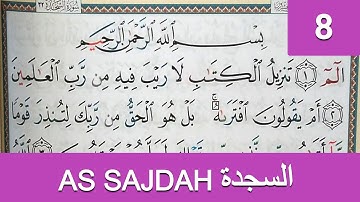 8
بِسْمِ اللَّهِ الرَّحْمَٰنِ الرَّحِيمِ
الٓمٓ ١ تَنْزِيلُ الْكِتَابِ لَا رَيْبَ فِيهِ مِنْ رَبِّ الْعَالَمِينَ
٢ أَمْ يَقُولُونَ افْتَرَاهُ بَلْ هُوَ الْحَقُّ مِنْ رَبِّكَ لِتُنْذِرَ قَوْمًا
AS SAJDAH السجدة